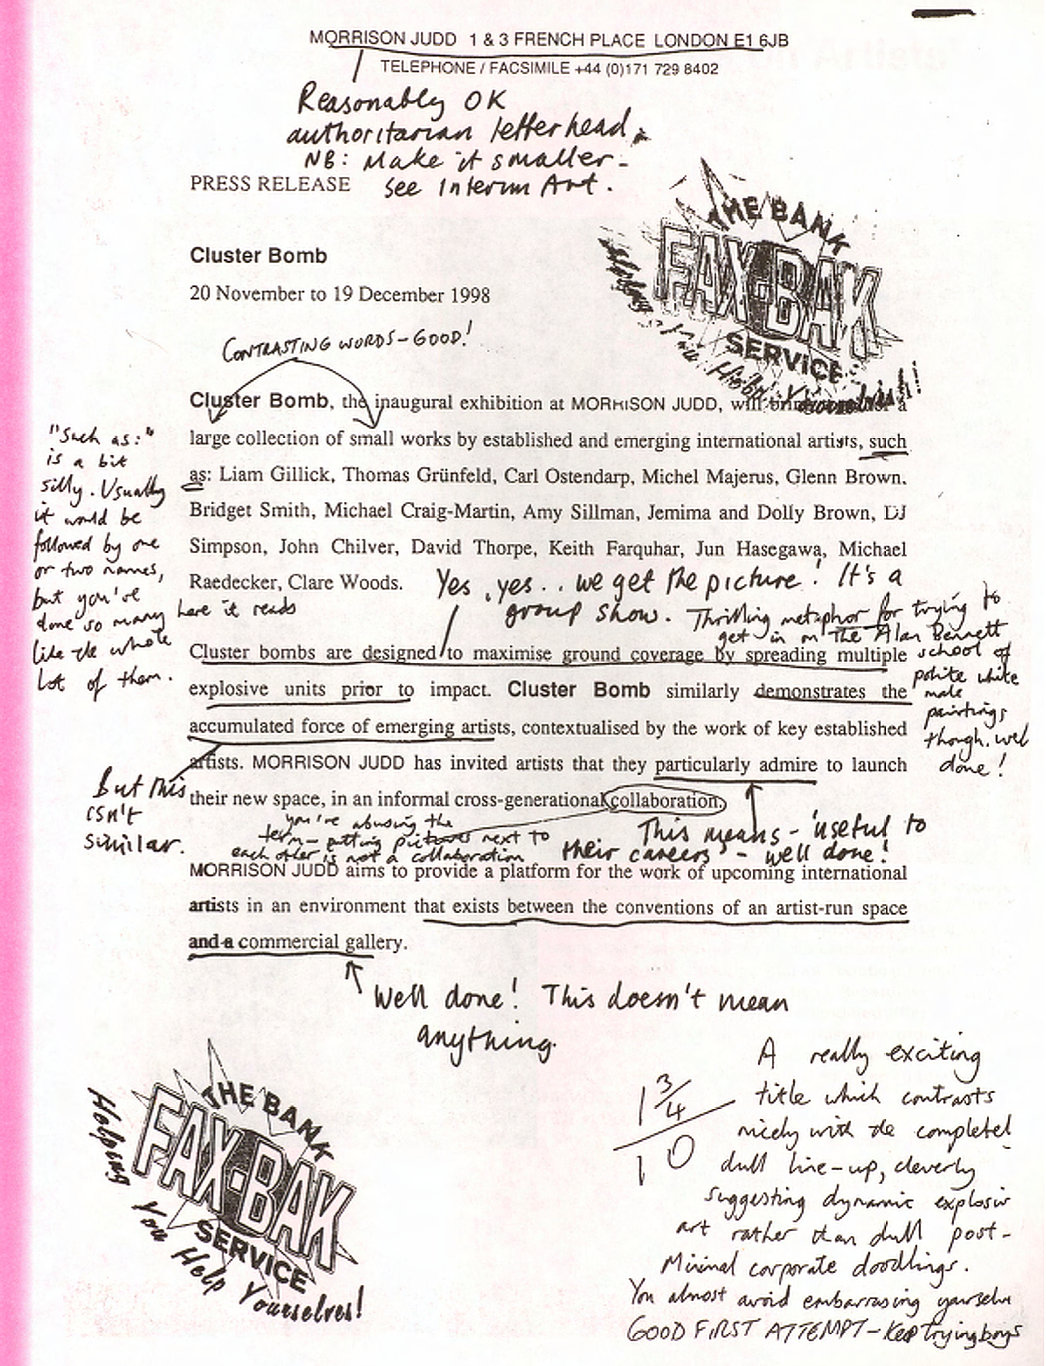 MORRISON JUDD 1 & 3 FRENCH PLACE LONDON E1 6JB
TELEPHONE / FACSIMILE +44 (0)171 729 8402
Reasonably OK
authoritarian letterhead.
NB: Make it smaller -
see Interim Art.
PRESS RELEASE
THE BANK
FAX-BAK
SERVICE
Helping You Help Yourselves!
Cluster Bomb
20 November to 19 December 1998
CONTRASTING WORDS - GOOD!
Cluster Bomb, the inaugural exhibition at MORRISON JUDD, will bring a
large collection of small works by established and emerging international artists, such
as: Liam Gillick, Thomas Grünfeld, Carl Ostendarp, Michel Majerus, Glenn Brown,
Bridget Smith, Michael Craig-Martin, Amy Sillman, Jemima and Dolly Brown, DJ
Simpson, John Chilver, David Thorpe, Keith Farquhar, Jun Hasegawa, Michael
Raedecker, Clare Woods.
"Such as:"
is a bit
silly. Usually
it would be
followed by one
or two names,
but you've
done so many here it reads
like the whole
lot of them.
Yes, yes.. we get the picture! It's a
group show. Thrilling metaphor for trying to
get in on the Alan Bennett
school of
polite white
male
paintings
though. well
done!
Cluster bombs are designed to maximise ground coverage by spreading multiple
explosive units prior to impact. Cluster Bomb similarly demonstrates the
accumulated force of emerging artists, contextualised by the work of key established
artists. MORRISON JUDD has invited artists that they particularly admire to launch
their new space, in an informal cross-generational collaboration.
But this
isn't
similar.
you're abusing the
term - putting pictures next to
each other is not a collaboration
This means - 'useful to
their careers' - well done!
MORRISON JUDD aims to provide a platform for the work of upcoming international
artists in an environment that exists between the conventions of an artist-run space
and a commercial gallery.
Well done! This doesn't mean
anything.
THE BANK
FAX-BAK
SERVICE
Helping You Help Yourselves!
1 3/4
10
A really exciting
title which contrasts
nicely with the completel
dull line-up, cleverly
suggesting dynamic explosiv
art rather than dull post-
Minimal corporate doodlings.
You almost avoid embarrasing yourselve
GOOD FIRST ATTEMPT - Keep trying boys